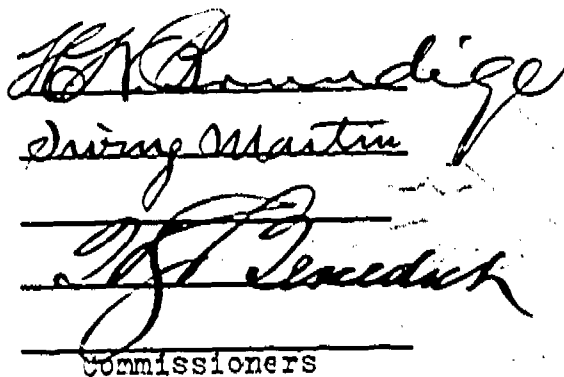 H.W. Brundige
Irving Martin
H.S. Benedict
Commissioners